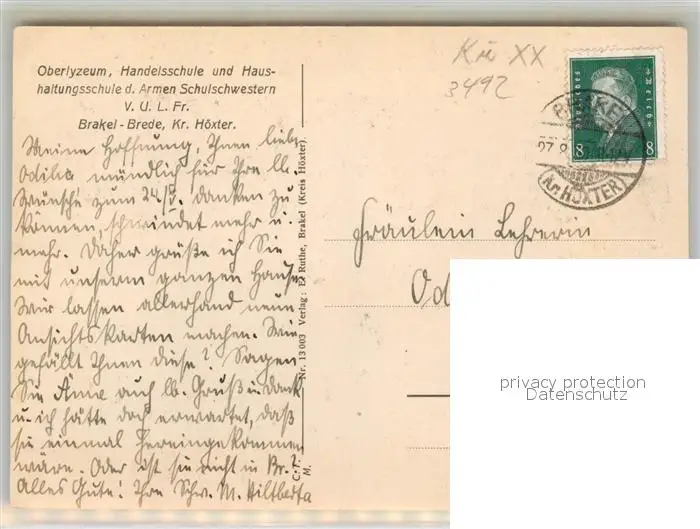 Oberlyzeum, Handelsschule und Haus-
haltungsschule d. Armen Schulschwestern
V. U. L. Fr.
Brakel-Brede, Kr. Höxter.
Meine Hoffnung, Ihnen liebe
Odila mündlich für Ihre lb.
Wünsche zum 24/V. danken zu
können, schwindet mehr u.
mehr. Daher grüße ich Sie
mit unserm ganzen Hause.
Wir lassen allerhand neue
Ansichtskarten machen. Wie
gefällt Ihnen diese? Sagen
Sie Änne auch lb. Gruß u. Dank
u. ich hätte doch erwartet, daß
sie einmal hereingekommen
wäre. Oder ist sie nicht in Br.?
Alles Gute! Ihre Schw. M. Hiltberta
Nr. 13 003 Verlag: E. Ruthe, Brakel (Kreis Höxter).
C. T.
M.
XX
3492
Deutsches Reich
8 8
BRAKEL
(Kr. HÖXTER)
Fräulein Lehrerin
Od
privacy protection
Datenschutz